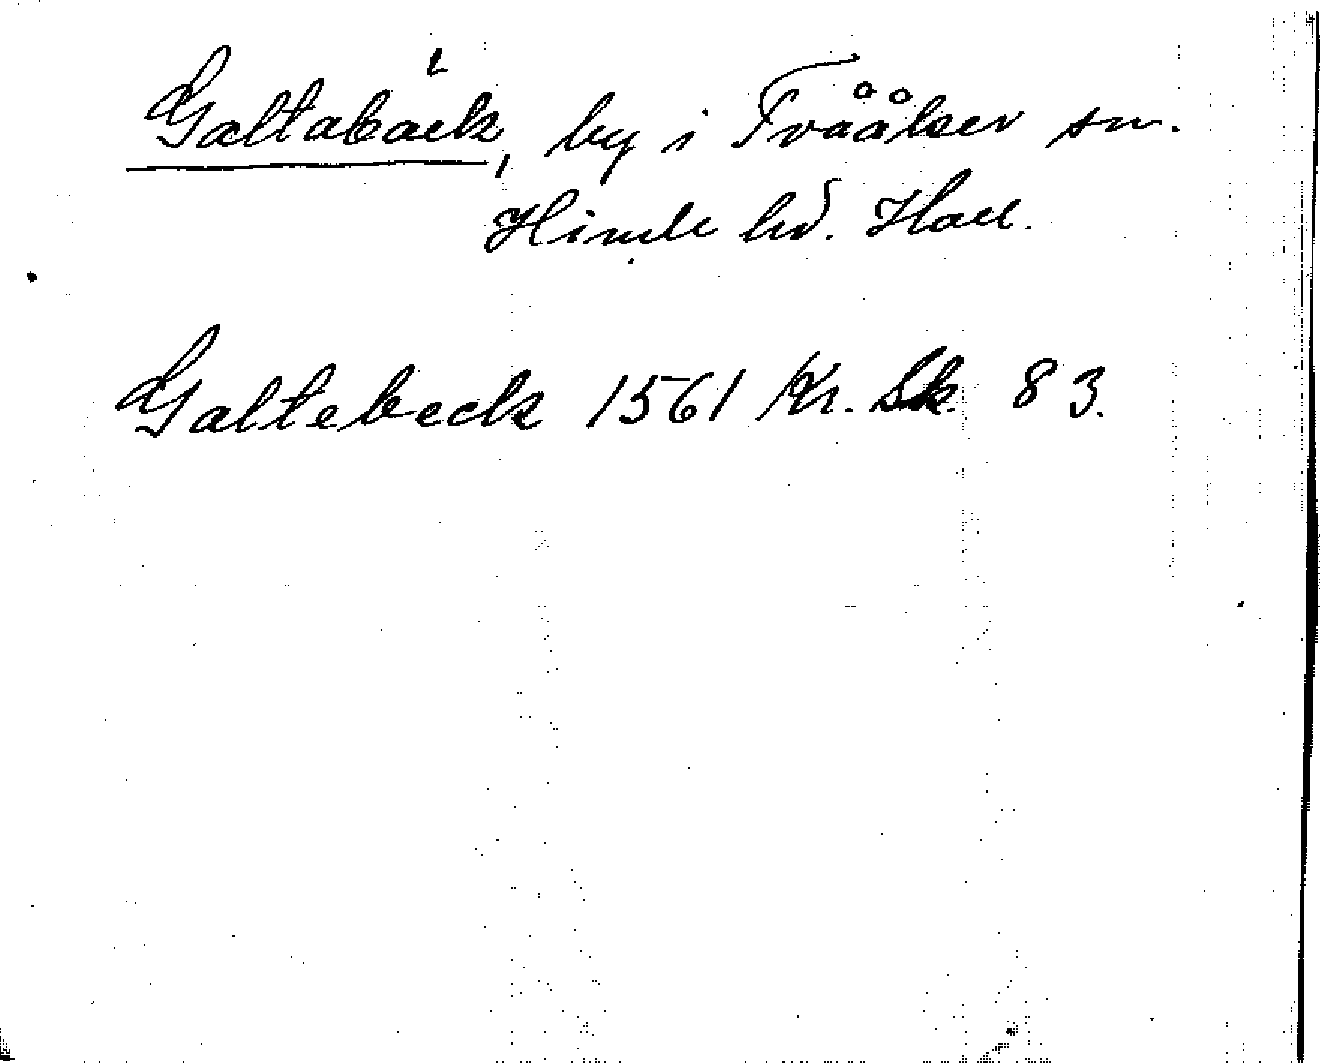 Galtabäck, by i Tvååker sn.
Himle hd. Hall.
Galtebeck 1561 Kr. Sk. 83.